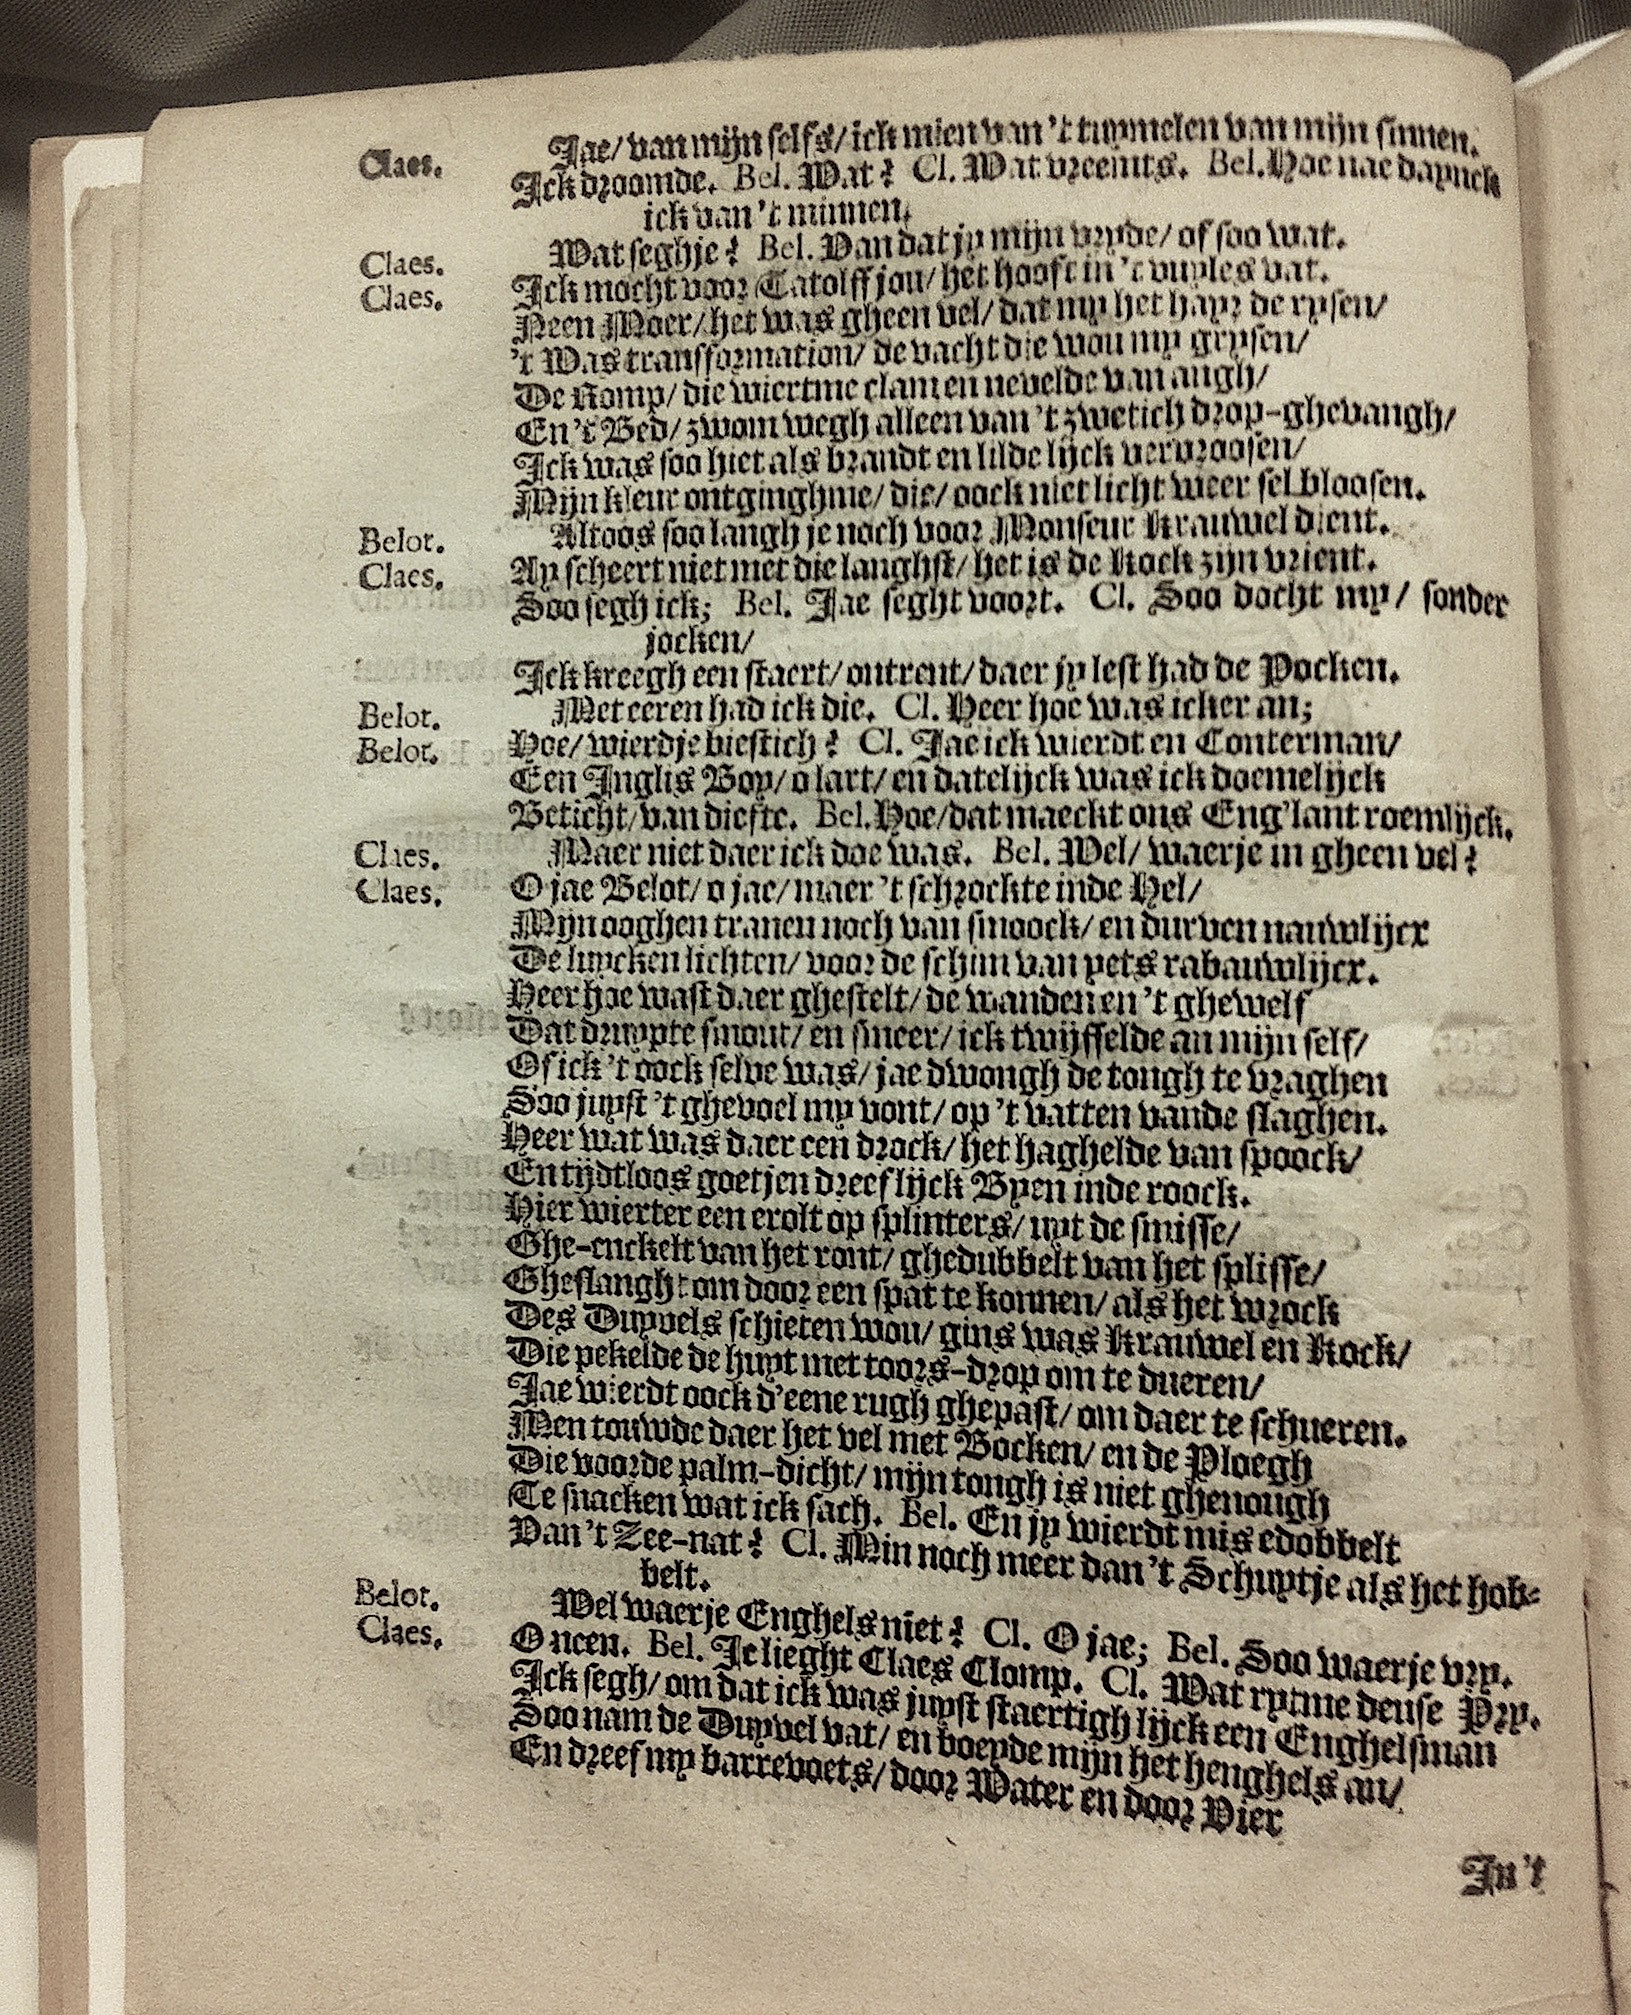 Claes. Jae/ van mijn selfs/ ick mien van 't tuymelen van mijn sinnen.
Ick droomde. Bel. Wat? Cl. Wat vreemts. Bel. Hoe nae dayuck
ick van 't minnen.
Claes. Wat seghje? Bel. Van dat jy mijn vryde/ of soo wat.
Claes. Ick mocht voor Catolff jou/ het hooft in 't vuyles vat.
Neen Moer/ het was gheen vel/ dat my het hayr de rysen/
't Was transformation/ de vacht die wou my grysen/
De Romp/ die wiertme clam en nevelde van angh/
En 't Bed/ zwom wegh alleen van 't zwetich drop-ghevangh/
Ick was soo hiet als brandt en lilde lijck vervroosen/
Mijn kleur ontginghme/ die/ oock niet licht weer sel bloosen.
Belot. Altoos soo langh je noch voor Monseur Krauwel dient.
Claes. Ay scheert niet met die langhst/ het is de Kock zijn vrient.
Soo segh ick; Bel. Jae seght voort. Cl. Soo docht my/ sonder
jocken/
Ick kreegh een staert/ ontrent/ daer jy lest had de Pocken.
Belot. Met eeren had ick die. Cl. Heer hoe was icker an;
Belot. Hoe/ wierdje biestich? Cl. Jae ick wierdt en Conterman/
Een Inglis Boy/ o lart/ en datelijck was ick doemelijck
Beticht/ van diefte. Bel. Hoe/ dat maeckt ons Eng'lant roemlijck.
Claes. Maer niet daer ick doe was. Bel. Wel/ waerje in gheen vel?
Claes. O jae Belot/ o jae/ maer 't schrockte inde Hel/
Mijn ooghen tranen noch van smoock/ en durven nauwlijcx
De luycken lichten/ voor de schim van yets rabauwlijcx.
Heer hoe wast daer ghestelt/ de wanden en 't ghewelf
Dat druypte smout/ en smeer/ ick twijffelde an mijn self/
Of ick 't oock selve was/ jae dwongh de tongh te vraghen
Soo juyst 't ghevoel my vont/ op 't vatten vande slaghen.
Heer wat was daer een drock/ het haghelde van spoock/
En tijdtloos goetjen dreef lijck Byen inde roock.
Hier wierter een erolt op splinters/ uyt de smisse/
Ghe-enckelt van het ront/ ghedubbelt van het splisse/
Gheslanght om door een spat te konnen/ als het wrock
Des Duyvels schieten wou/ gins was Krauwel en Kock/
Die pekelde de huyt met toors-drop om te dueren/
Jae wierdt oock d'eene rugh ghepast/ om daer te schueren.
Men touwde daer het vel met Bocken/ en de Ploegh
Die voorde palm-dicht/ mijn tongh is niet ghenough
Te snacken wat ick sach. Bel. En jy wierdt mis edobbelt
Van 't Zee-nat? Cl. Min noch meer dan 't Schuytje als het hob-
belt.
Belot. Wel waerje Enghels niet? Cl. O jae; Bel. Soo waerje vry.
Claes. O neen. Bel. Je lieght Claes Clomp. Cl. Wat rytme deuse Pry.
Ick segh/ om dat ick was juyst staertigh lijck een Enghelsman
Soo nam de Duyvel vat/ en boeyde mijn het henghels an/
En dreef my barrevoets/ door Water en door Vier
In 't